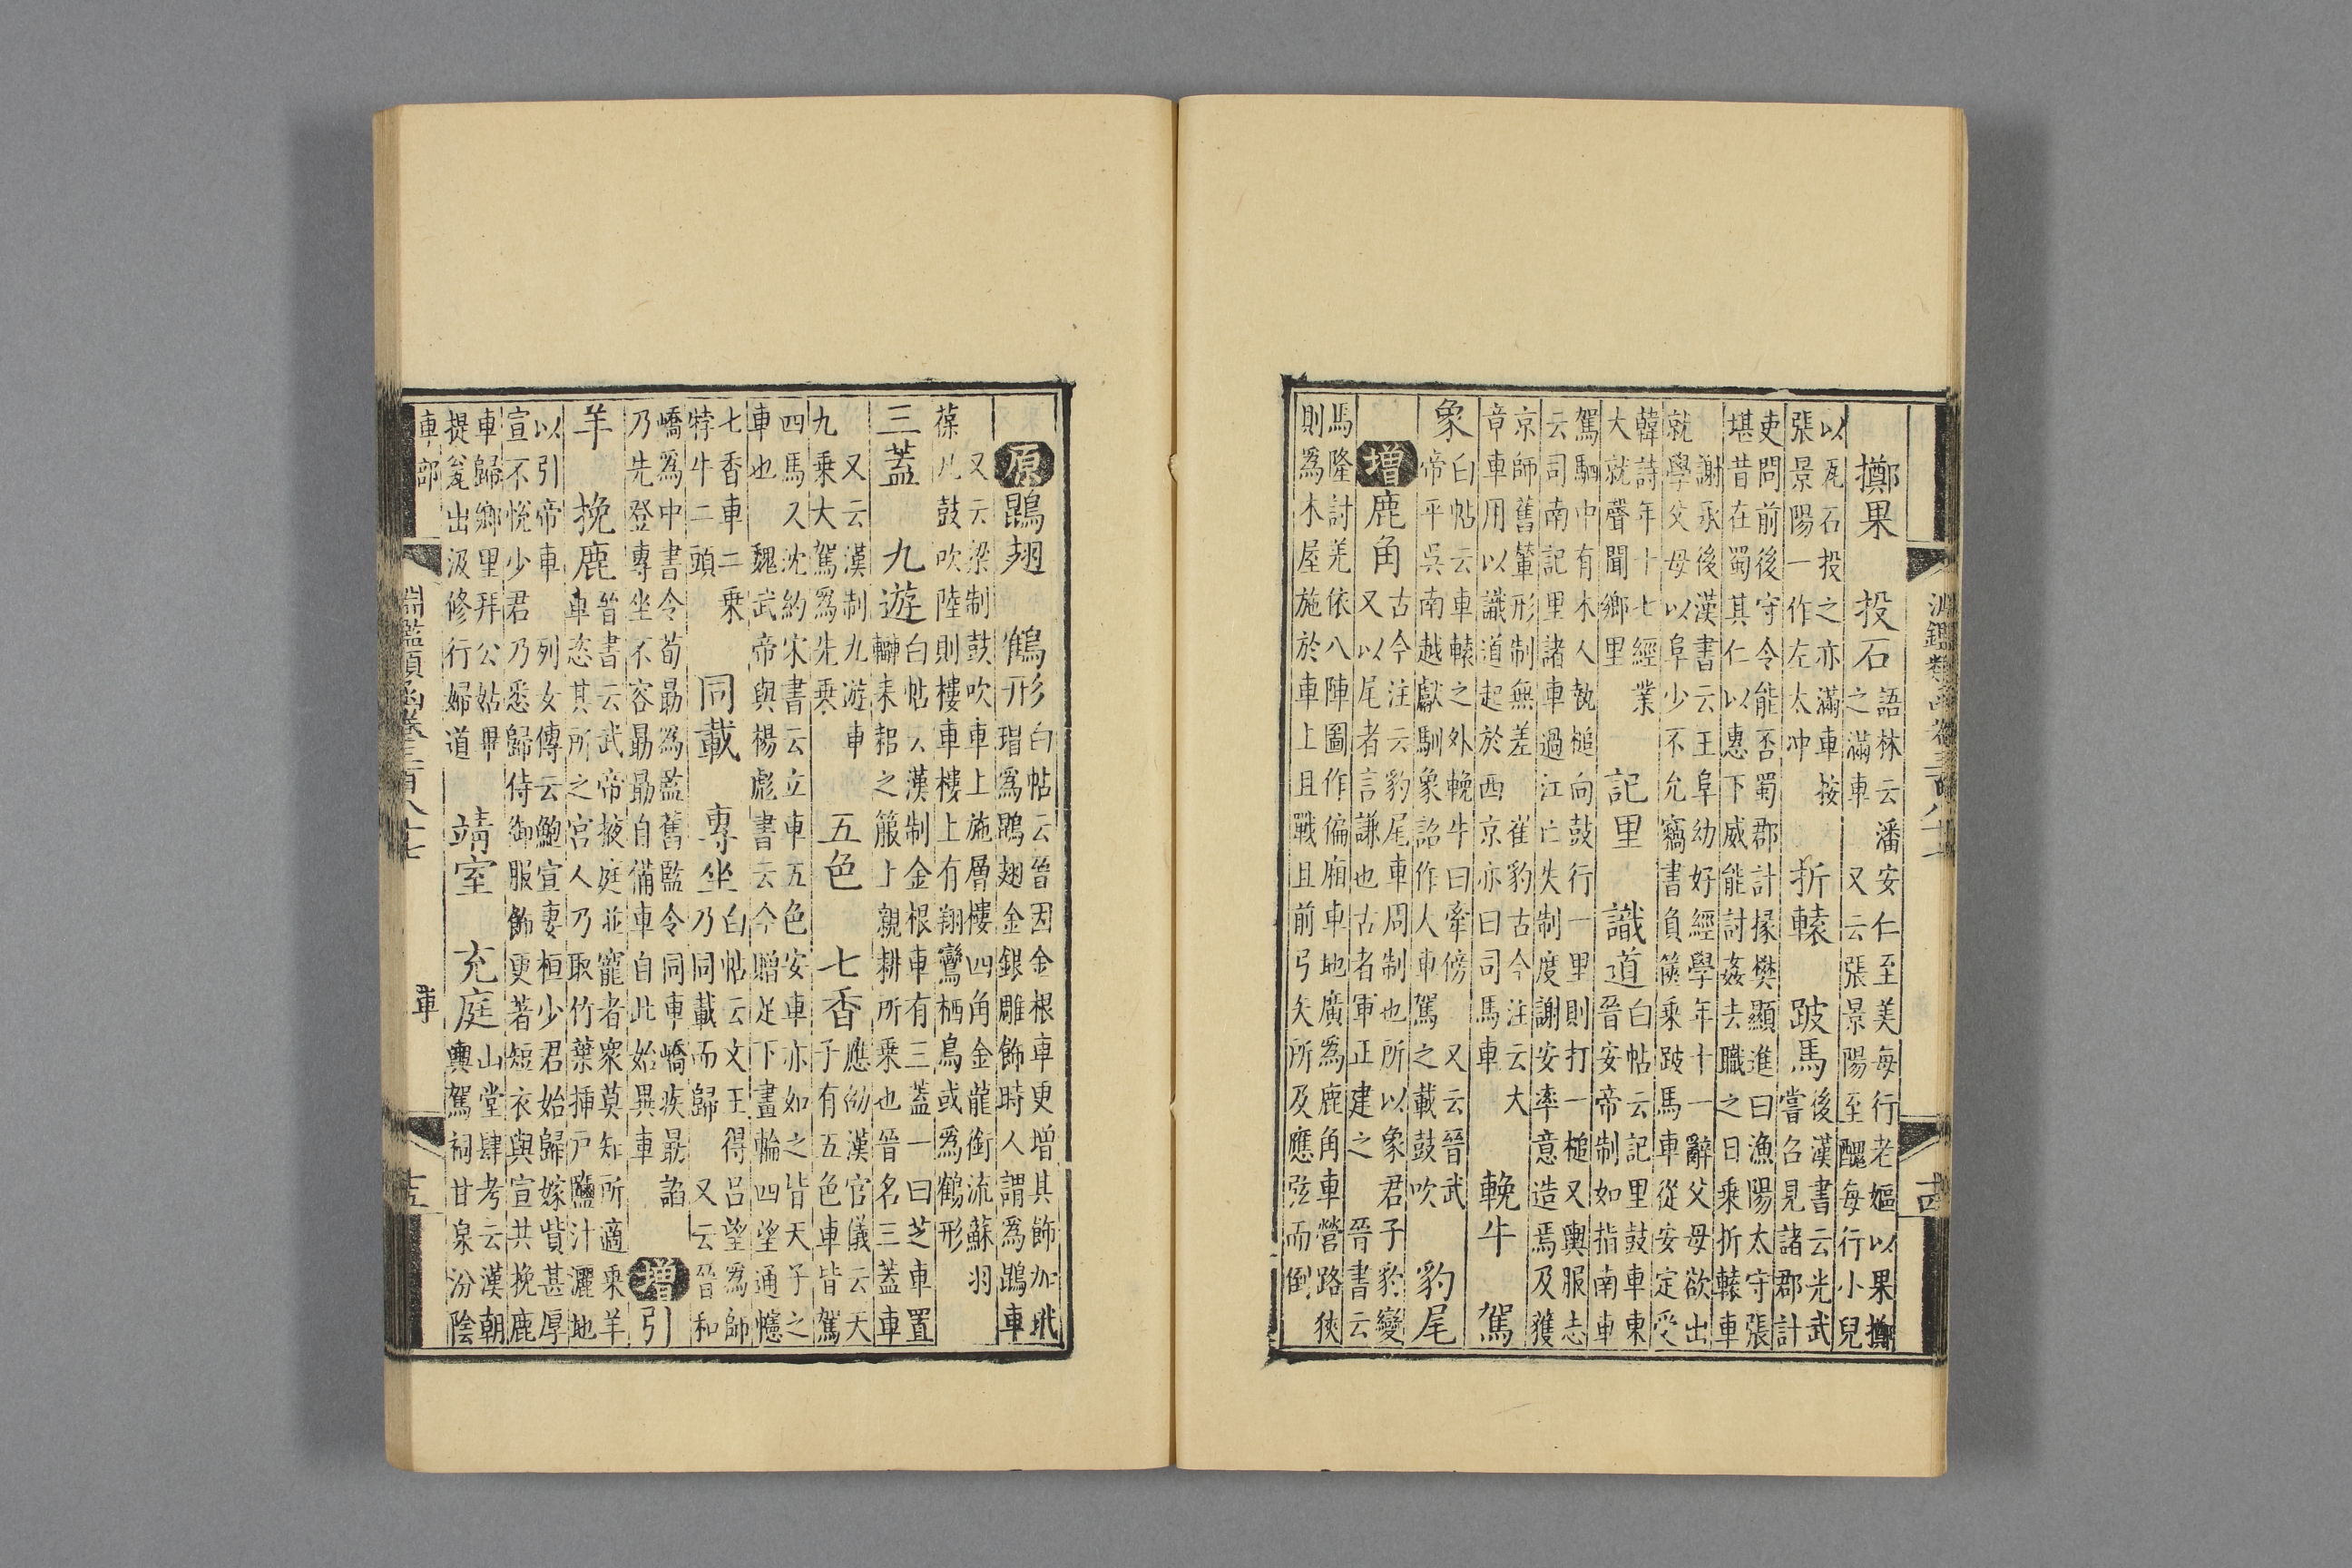 淵鑑類函卷三百八十七 十四
擲果 投石
語林云潘安仁至美每行老嫗以果擲
之滿車 又云張景陽至醜每行小兒
以瓦石投之亦滿車按
張景陽一作左太冲
折轅 跛馬
後漢書云光武
嘗召見諸郡計
吏問前後守令能否蜀郡計掾樊顯進曰漁陽太守張
堪昔在蜀其仁以惠下威能討姦去職之日乘折轅車
謝承後漢書云王阜幼好經學年十一辭父母欲出
就學父母以阜少不允竊書負篋乘跛馬車從安定受
韓詩年十七經業
大就聲聞鄉里
記里 識道
白帖云記里鼓車東
晉安帝制如指南車
駕駟中有木人執槌向鼓行一里則打一槌又輿服志
云司南記里諸車過江亡失制度謝安率意造焉及獲
京師舊輦形制無差 崔豹古今注云大
章車用以識道起於西京亦曰司馬車
輓牛 駕
象
白帖云車轅之外輓牛曰牽傍 又云晉武
帝平吳南越獻馴象詔作大車駕之載鼓吹
豹尾
增 鹿角
古今注云豹尾車周制也所以象君子豹變
又以尾者言謙也古者軍正建之 晉書云
馬隆討羌依八陣圖作偏廂車地廣為鹿角車營路狹
則為木屋施於車上且戰且前弓矢所及應弦而倒
原 鵾翅 鶴形
白帖云晉因金根車更增其飾加玳
瑁為鵾翅金銀雕飾時人謂為鵾車
又云梁制鼓吹車上施層樓四角金龍銜流蘇羽
葆凡鼓吹陸則樓車樓上有翔鸞栖鳥或為鶴形
三蓋 九遊
白帖云漢制金根車有三蓋一曰芝車置
轓耒耜之箙上親耕所乘也晉名三蓋車
又云漢制九遊車
九乘大駕為先乘
五色 七香
應劭漢官儀云天
子有五色車皆駕
四馬又沈約宋書云立車五色安車亦如之皆天子之
車也 魏武帝與楊彪書云今贈足下畫輪四望通幰
七香車二乘
牸牛二頭
同載 專坐
白帖云文王得呂望為師
乃同同載而歸 又云晉和
嶠為中書令荀勗為監舊監令同車嶠疾勗諂
乃先登專坐不容勗勗自備車自此始異車
增 引
羊 挽鹿
晉書云武帝掖庭並寵者衆莫知所適乘羊
車恣其所之宮人乃取竹葉插戶鹽汁灑地
以引帝車 列女傳云鮑宣妻桓少君始歸嫁貲甚厚
宣不悅少君乃悉歸侍御服飾更著短衣與宣共挽鹿
車歸鄉里拜公姑畢
提瓮出汲修行婦道
靖室 充庭
山堂肆考云漢朝
輿駕祠甘泉汾陰
車部 淵鑑類函卷三百八十七 車 十五